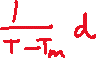 \frac{1}{T-T_m} d